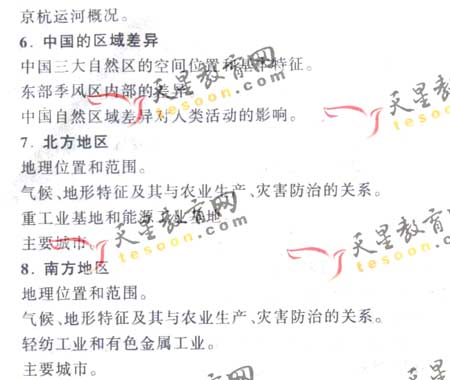 京杭运河概况。
6. 中国的区域差异
中国三大自然区的空间位置和基本特征。
东部季风区内部的差异。
中国自然区域差异对人类活动的影响。
7. 北方地区
地理位置和范围。
气候、地形特征及其与农业生产、灾害防治的关系。
重工业基地和能源工业基地
主要城市。
8. 南方地区
地理位置和范围。
气候、地形特征及其与农业生产、灾害防治的关系。
轻纺工业和有色金属工业。
主要城市。
天星教育网
tesoon.com
天星教育网
tesoon.com
天星教育网
tesoon.com
天星教育网
tesoon.com